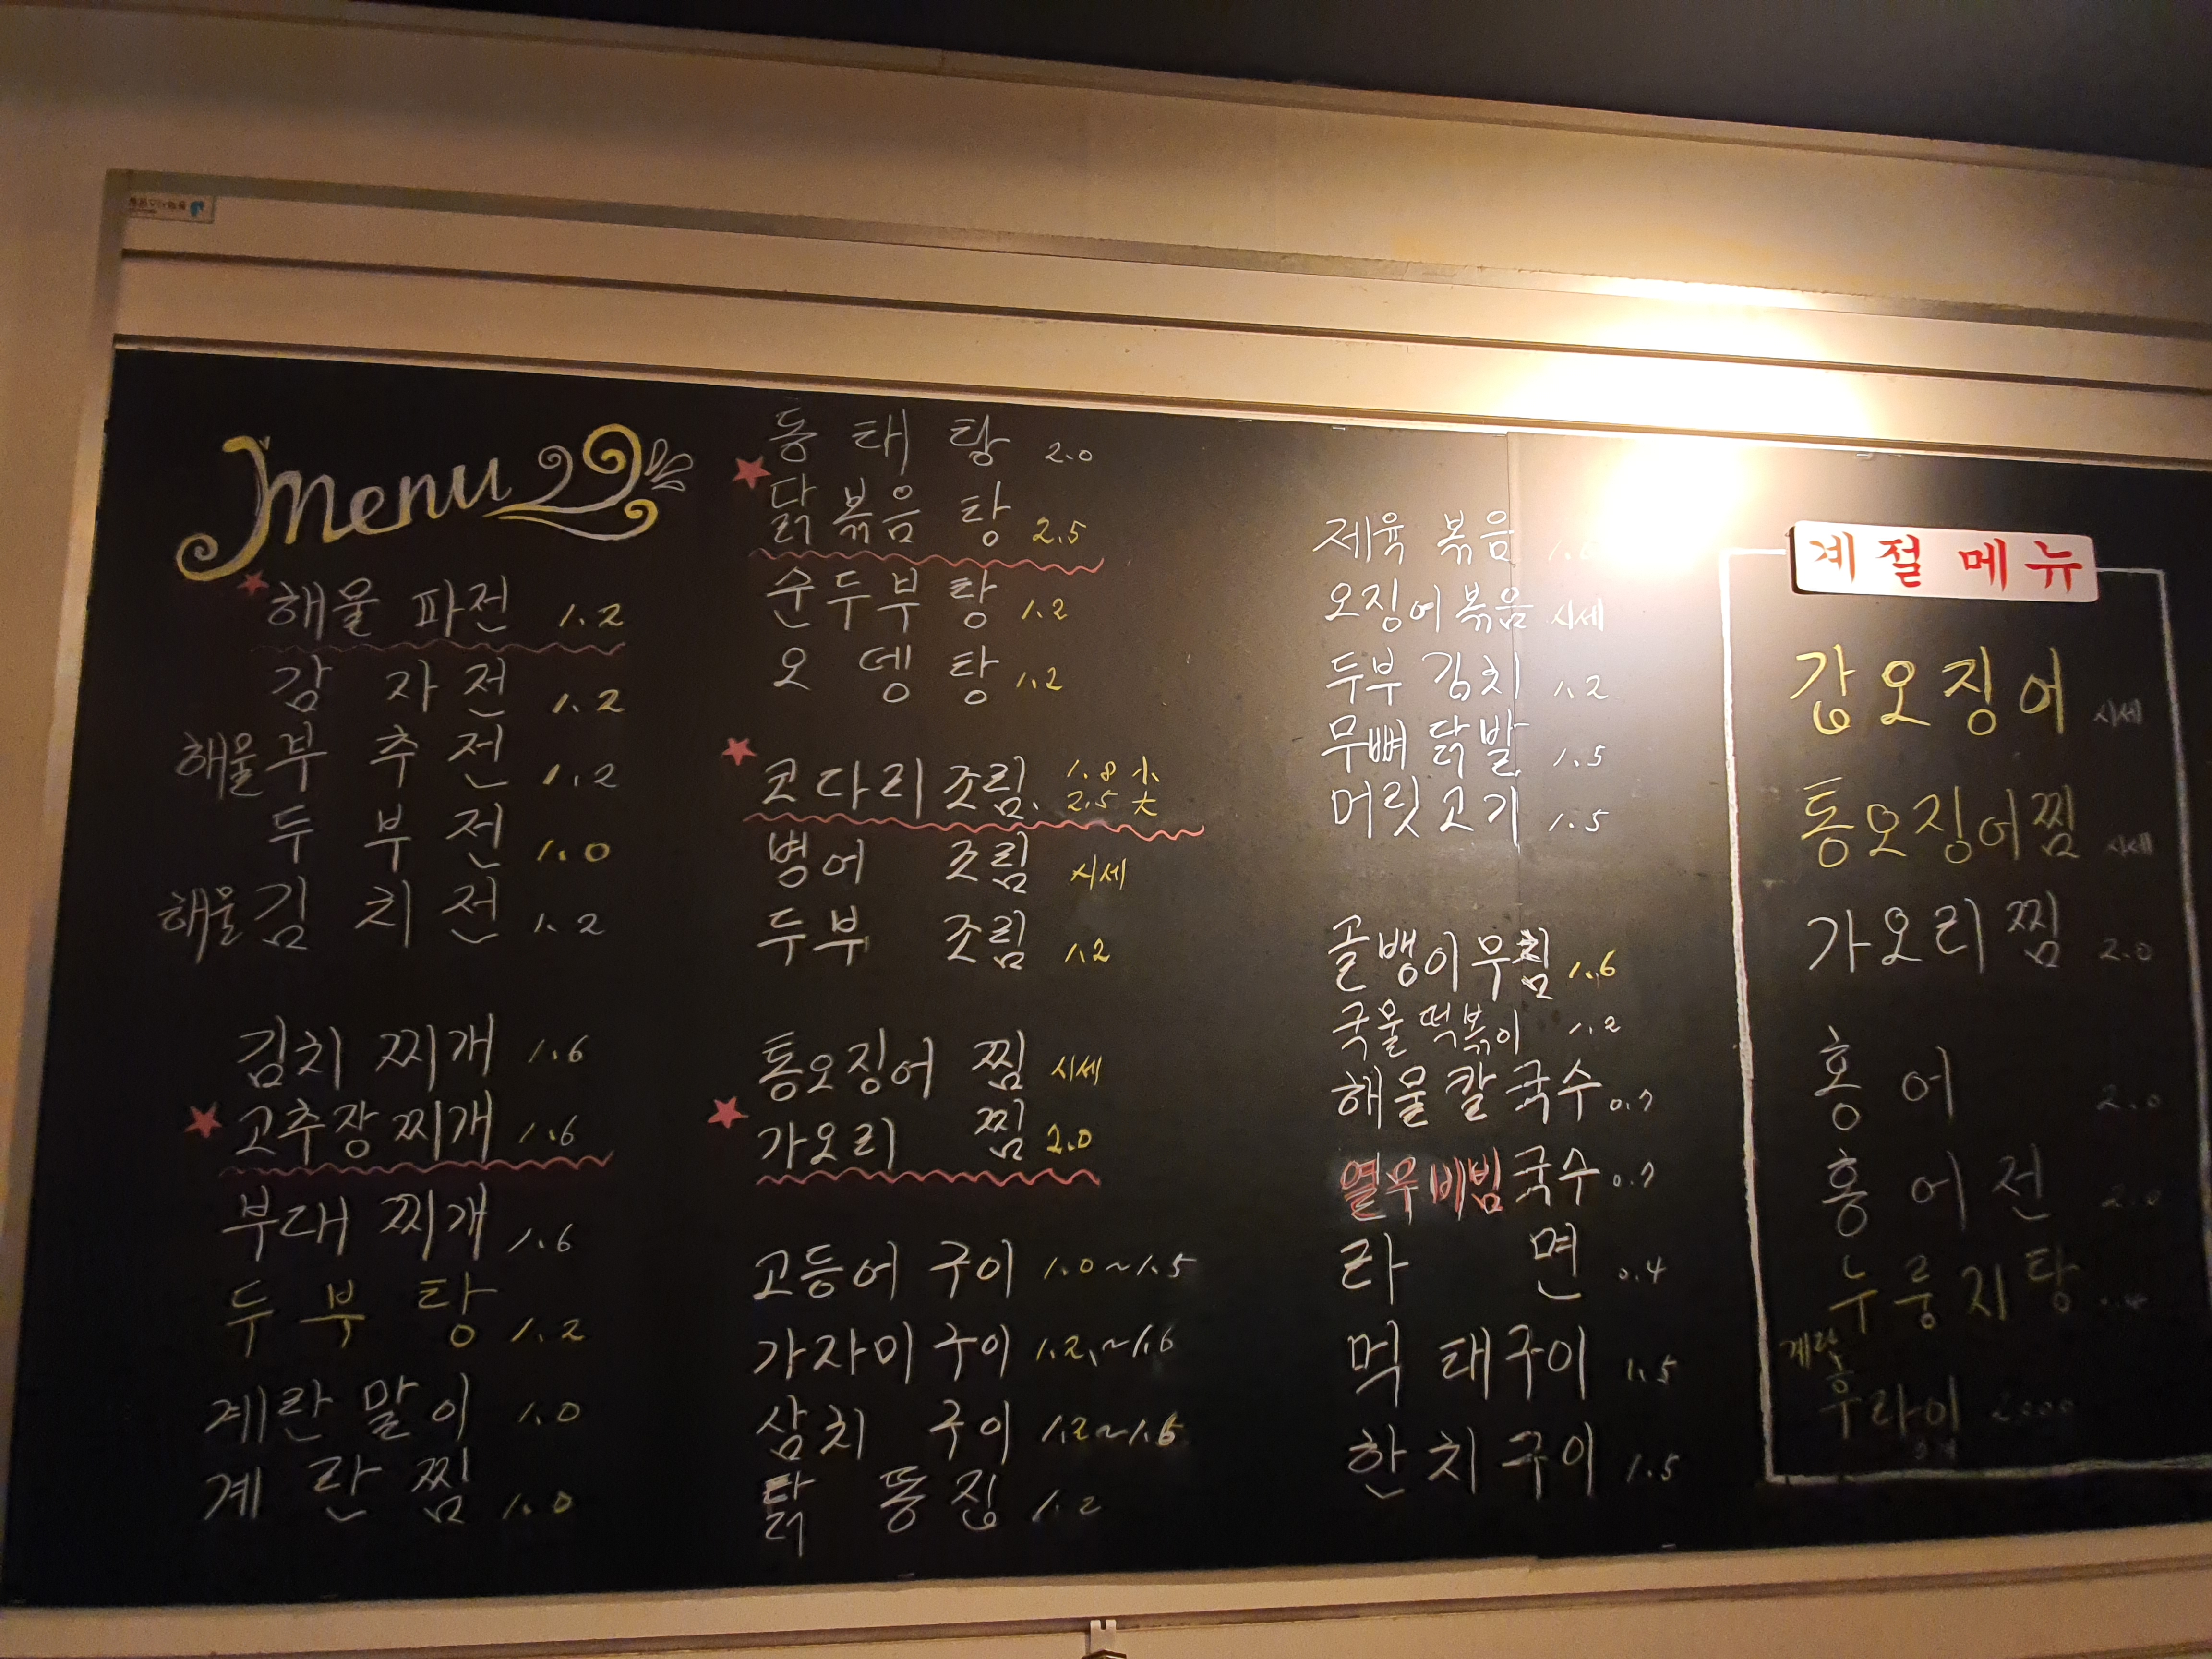 Menu
해물 파전 1.2
감 자 전 1.2
해물부 추 전 1.2
두 부 전 1.0
해물김 치 전 1.2
김치 찌개 1.6
고추장찌개 1.6
부대 찌개 1.6
두 부 탕 1.2
계란 말이 1.0
계 란 찜 1.0
동 태 탕 2.0
닭 볶음 탕 2.5
순두부 탕 1.2
오 뎅 탕 1.2
코다리 조림 1.8 小
2.5 大
병어 조림 시세
두부 조림 1.2
통오징어 찜 시세
가오리 찜 2.0
고등어 구이 1.0~1.5
가자미 구이 1.2~1.6
삼치 구이 1.2~1.6
닭 똥 집 1.2
제육 볶음
오징어볶음 시세
두부 김치 1.2
무뼈 닭발 1.5
머릿고기 1.5
골뱅이무침 1.6
국물 떡볶이 1.2
해물칼국수 0.7
열무비빔국수 0.7
라 면 0.4
먹 태구이 1.5
한 치구이 1.5
계절 메뉴
갑오징어 시세
통오징어찜 시세
가오리찜 2.0
홍 어 2.0
홍 어 전 2.0
누 룽 지 탕
계란
후라이 2000